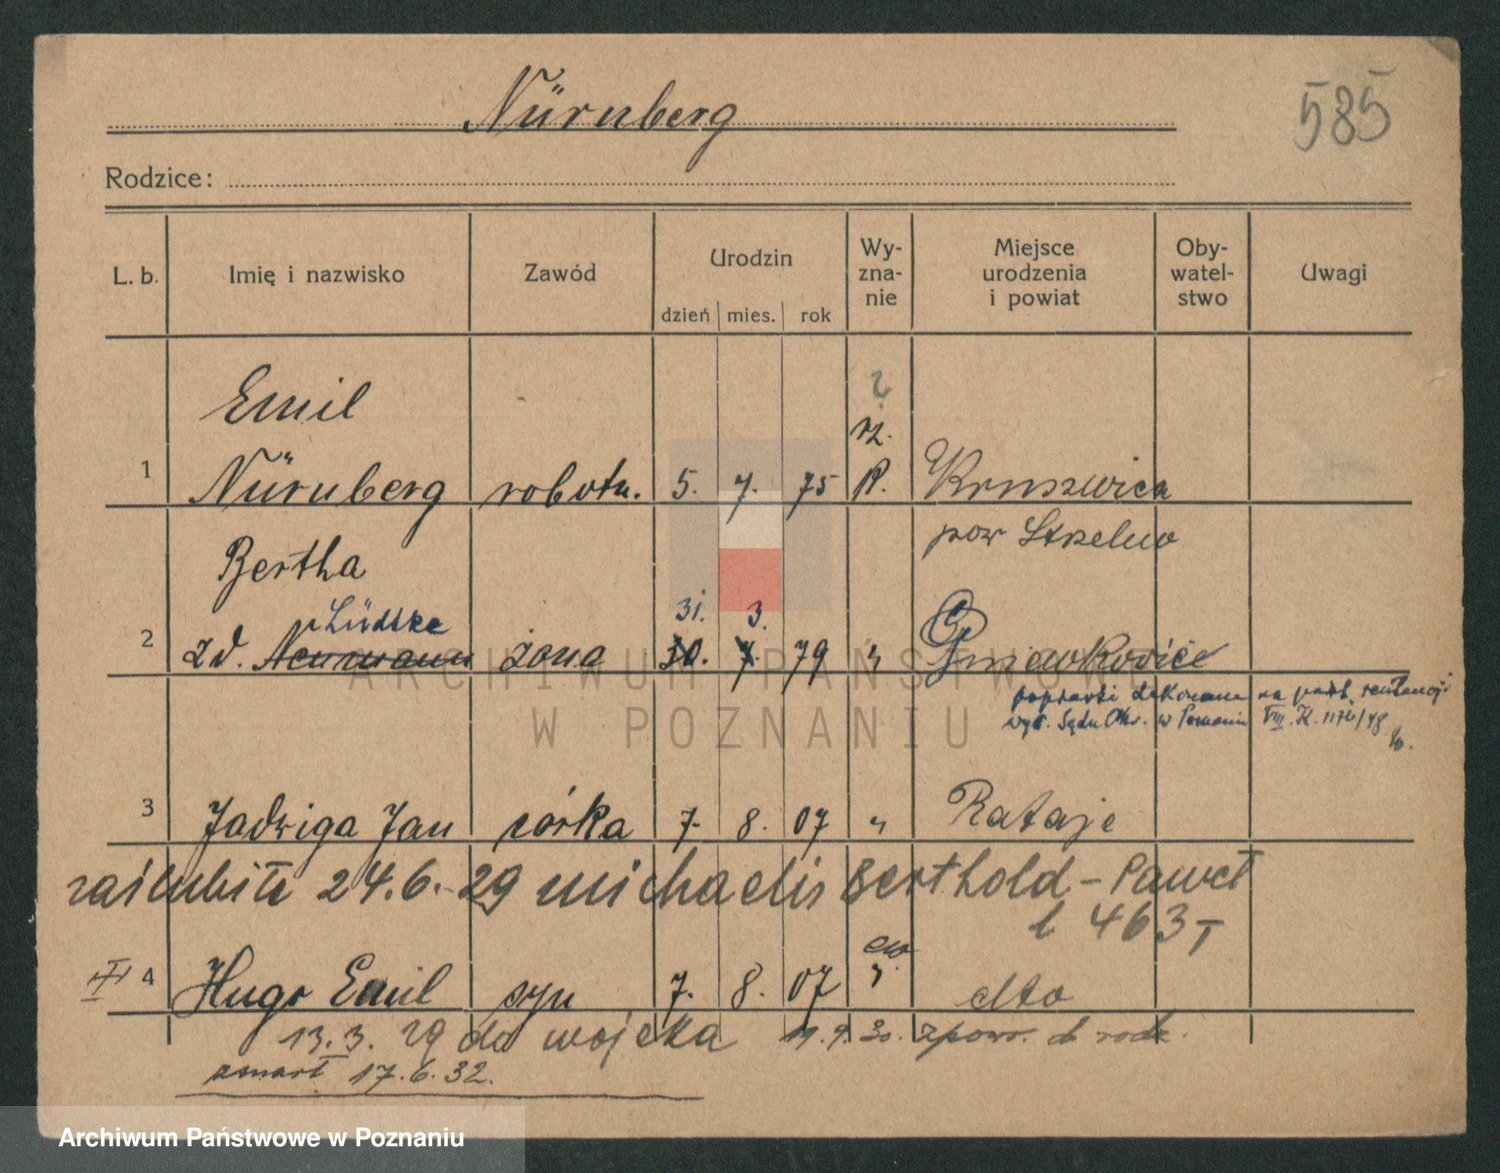 Nürnberg
585
Rodzice:
L. b. Imię i nazwisko Zawód Urodzin dzień mies. rok Wy-zna-nie Miejsce urodzenia i powiat Oby-watel-stwo Uwagi
Emil
1 Nürnberg robotn. 5. 7. 75 R. Kruszwica
pow Strzelno
Bertha
Lüdtke 31. 3.
2 zd. Neumann żona 30. 7. 79 "
poprawki dokonano na podst.
wyr. Sądu Okr. w Poznaniu VIII. K.
3 Jadwiga Jan córka 7. 8. 07 " Rataje
zaślubiła 24.6.-29 Michaelis Berthold - Paweł
463
III 4 Hugo Emil syn 7. 8. 07 " dto
ew
13.3.29 do wojska 11.9.30. zpowr. d rodz.
zmarł 17.6.32.
ARCHIWUM PAŃSTWOWE
W POZNANIU
Archiwum Państwowe w Poznaniu